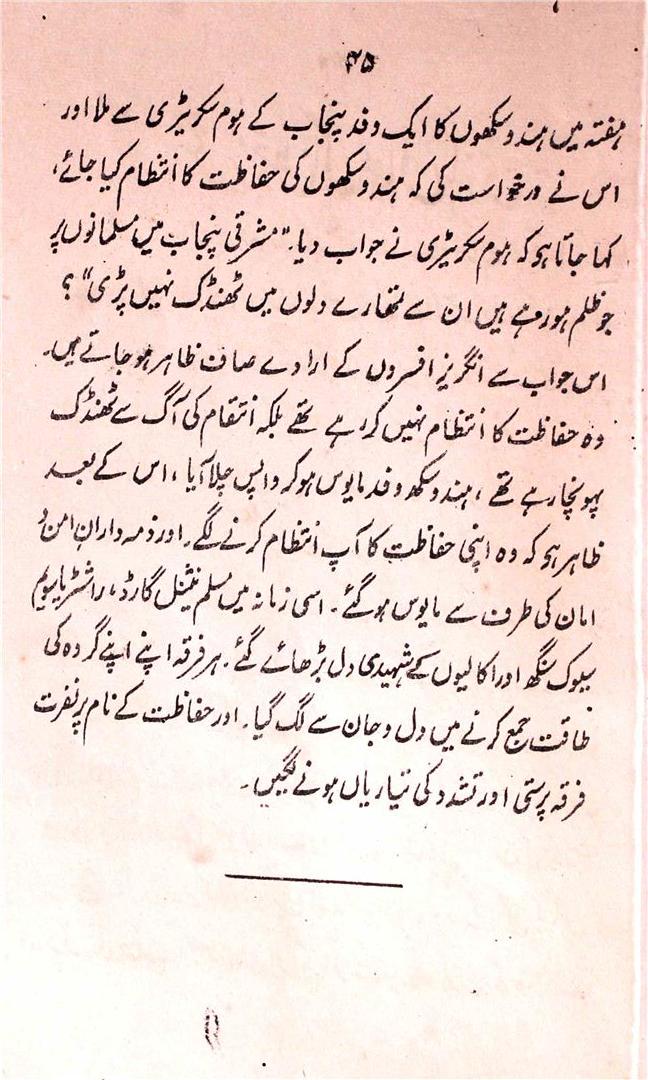 ۴۵
ہفتہ میں ہندو سکھوں کا ایک وفد پنجاب کے ہوم سکریٹری سے ملا اور
اس نے درخواست کی کہ ہندو سکھوں کی حفاظت کا انتظام کیا جائے،
کہا جاتا ہو کہ ہوم سکریٹری نے جواب دیا۔ "مشرقی پنجاب میں مسلمانوں پر
جو ظلم ہو رہے ہیں ان سے تمھارے دلوں میں ٹھنڈک نہیں پڑی"؟
اس جواب سے انگریز افسروں کے ارادے صاف ظاہر ہو جاتے ہیں۔
وہ حفاظت کا انتظام نہیں کر رہے تھے بلکہ انتقام کی آگ سے ٹھنڈک
پہونچا رہے تھے، ہندو سکھ وفد مایوس ہو کر واپس چلا آیا، اس کے بعد
ظاہر ہو کہ وہ اپنی حفاظت کا آپ انتظام کرنے لگے۔ اور ذمہ داران امن و
امان کی طرف سے مایوس ہو گئے۔ اسی زمانہ میں مسلم نیشنل گارڈ، راشٹریا سویم
سیوک سنگھ اور اکالیوں کے شہیدی دل بڑھائے گئے۔ ہر فرقہ اپنے اپنے گروہ کی
طاقت جمع کرنے میں دل و جان سے لگ گیا۔ اور حفاظت کے نام پر نفرت
فرقہ پرستی اور تشدد کی تیاریاں ہونے لگیں۔